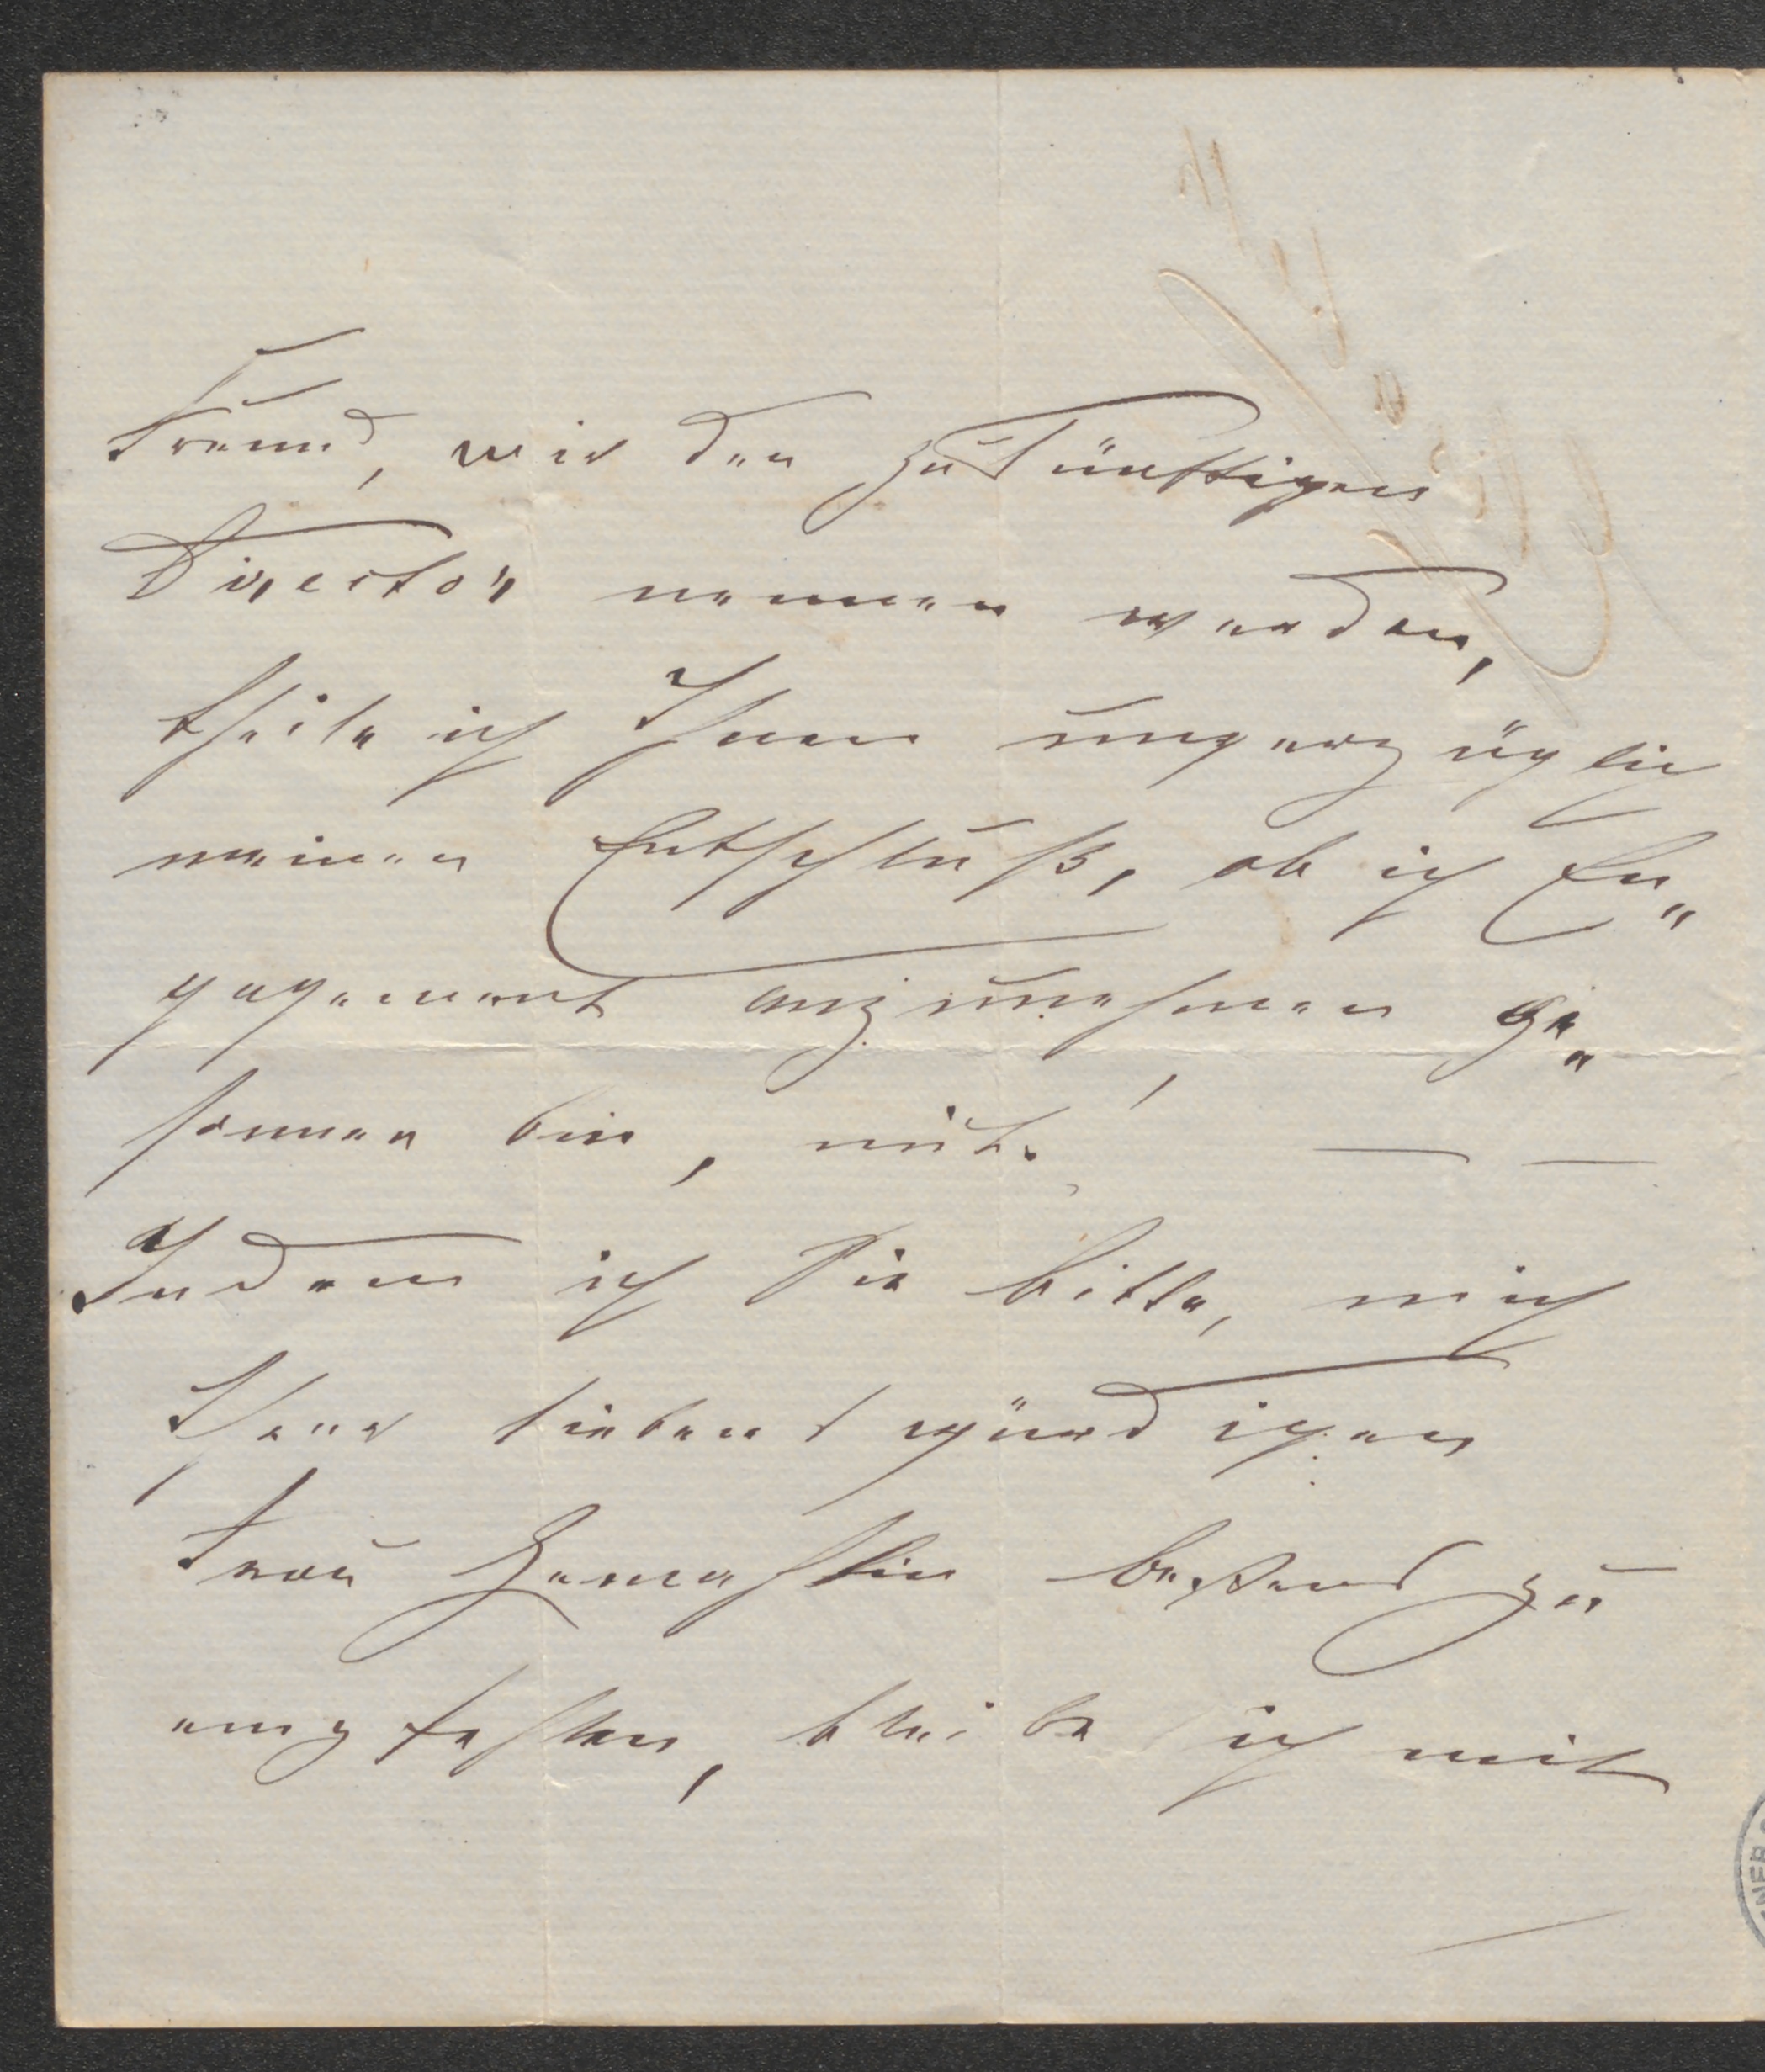 Freund, mir den zukünftigen
Director nennen werden,
theile ich Ihnen ungerzüglich
meinen Entschluß, ob ich En„
gagement anzunehmen ge„
sonnen bin, mit. — —
Indem ich Sie bitte, mich
Ihrer liebenswürdigen
Frau Gemahlin bestens zu
empfehlen, bleibe ich mit